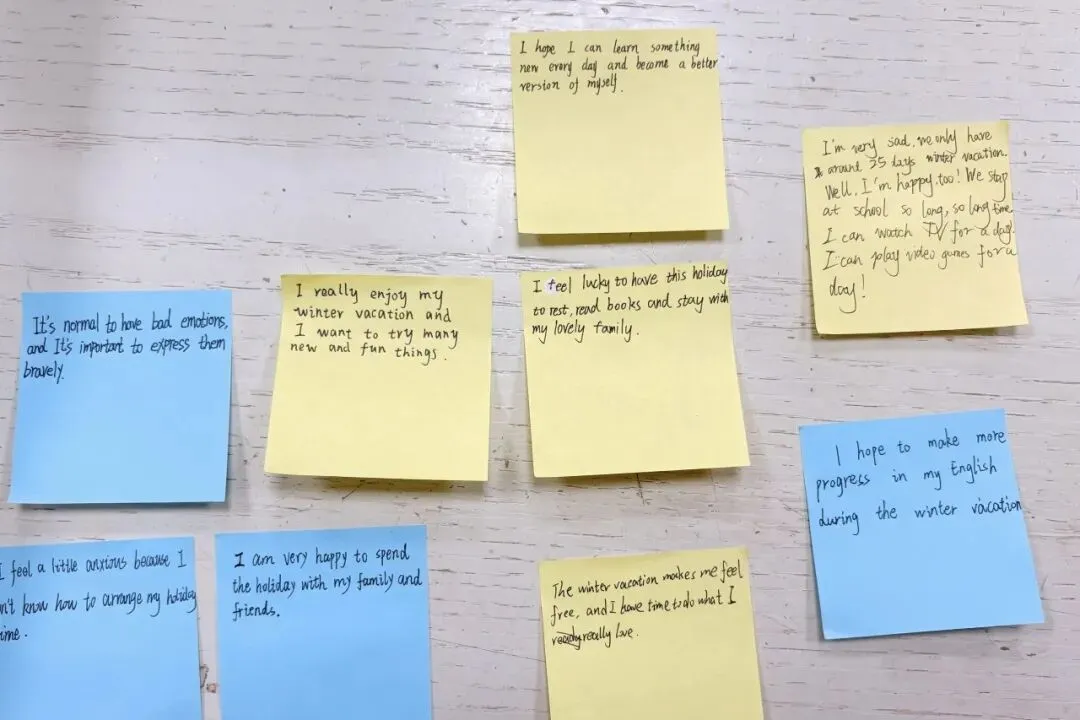 I hope I can learn something
new every day and become a better
version of myself.
I'm very sad, we only have
around 25 days winter vacation.
Well, I'm happy, too! We stay
at school so long, so long time.
I can watch TV for a day!
I can play video games for a
day!
It's normal to have bad emotions,
and It's important to express them
bravely.
I really enjoy my
winter vacation and
I want to try many
new and fun things.
I feel lucky to have this holiday
to rest, read books and stay with
my lovely family.
I hope to make more
progress in my English
during the winter vacation
I feel a little anxious because I
n't know how to arrange my holiday
ime.
I am very happy to spend
the holiday with my family and
friends.
The winter vacation makes me feel
free, and I have time to do what I
really love.